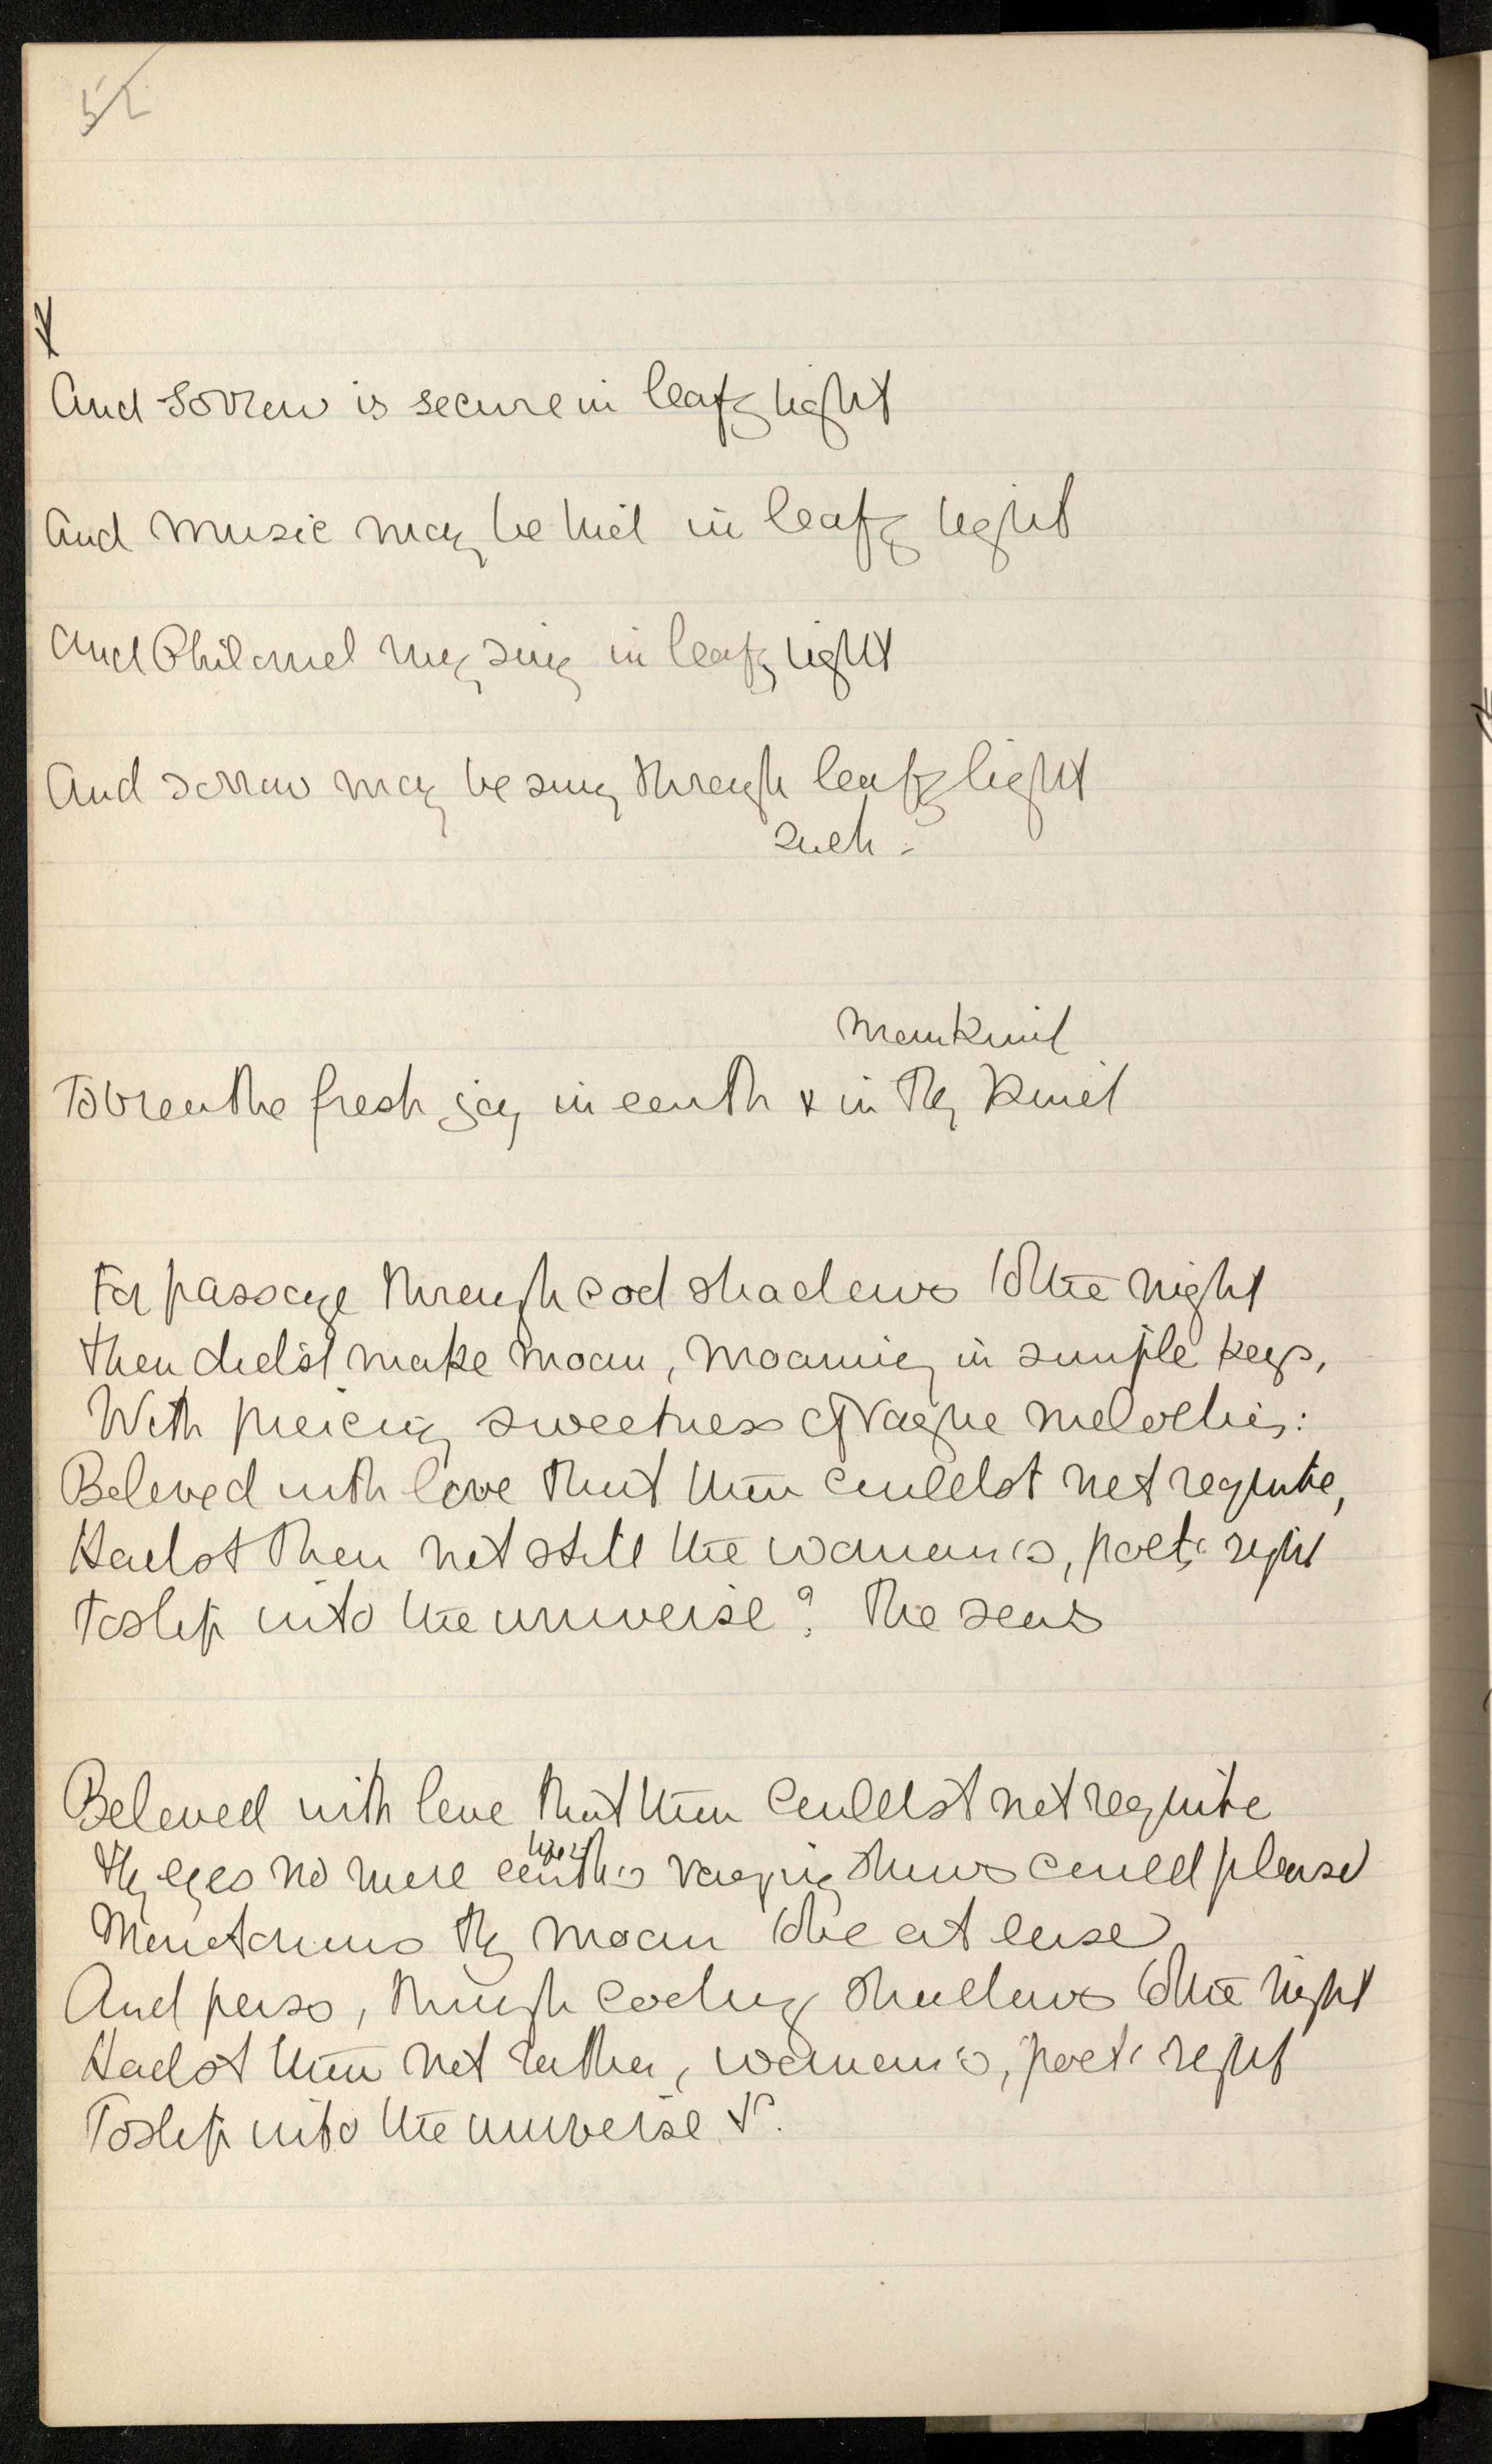 52
And sorrow is secure in leafy light
And music may be hid in leafy light
And Philomel may sing in leafy light
And sorrow may be sung through leafy light
such
mankind
To breathe fresh joy in earth & in thy kind
For passage through cool shadows to the night
Thou didst make moan, moaning in simple keys,
With piercing sweetness of vague melodies:
Beloved with love that thou couldst not requite,
Hadst thou not still the woman's, poet's right
To slip into the universe? The seas
Beloved with love that thou couldst not requite
life's
Thy eyes no more earth's varying shows could please
Monotonous thy moan to be at ease
And pass, through cooling shadows to the night
Hadst thou not rather, woman's, poet's right
To slip into the universe &c.